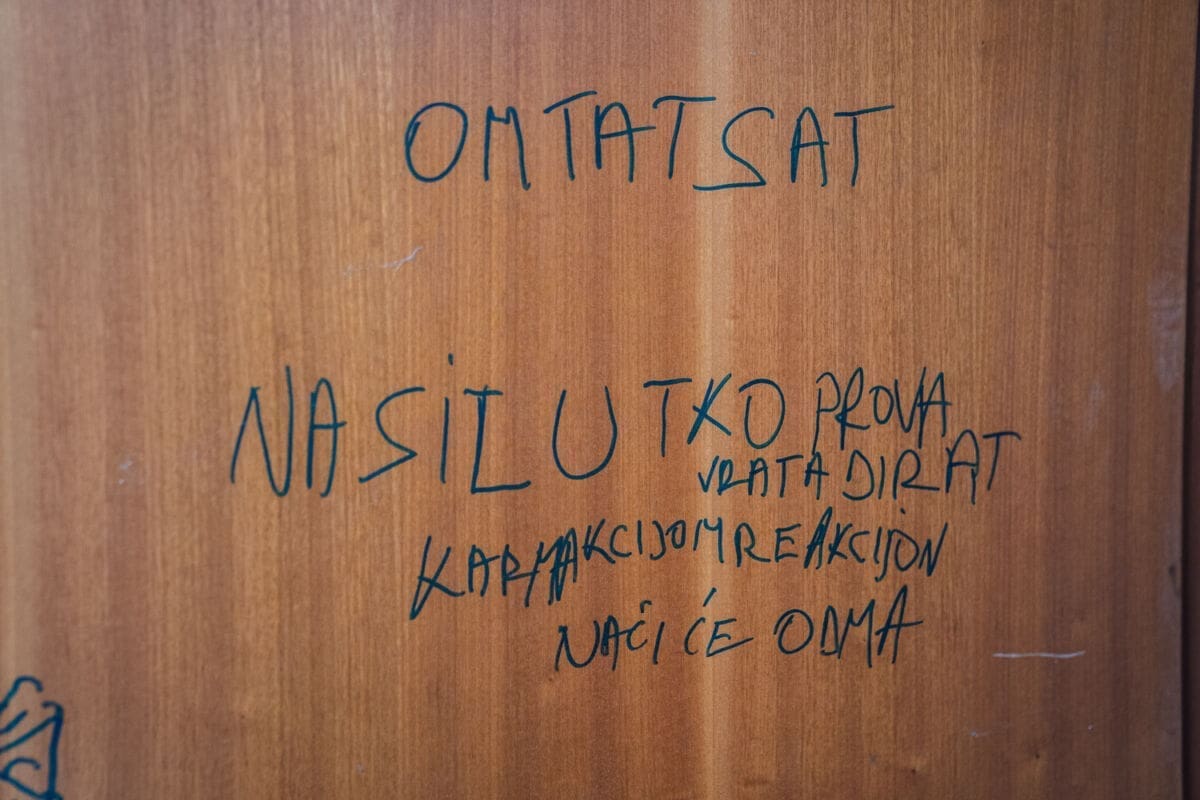 OM TAT SAT
NA SILU TKO PROVA
VRATA DIRAT
KARMA AKCIJOM REAKCIJON
NAĆI ĆE ODMA